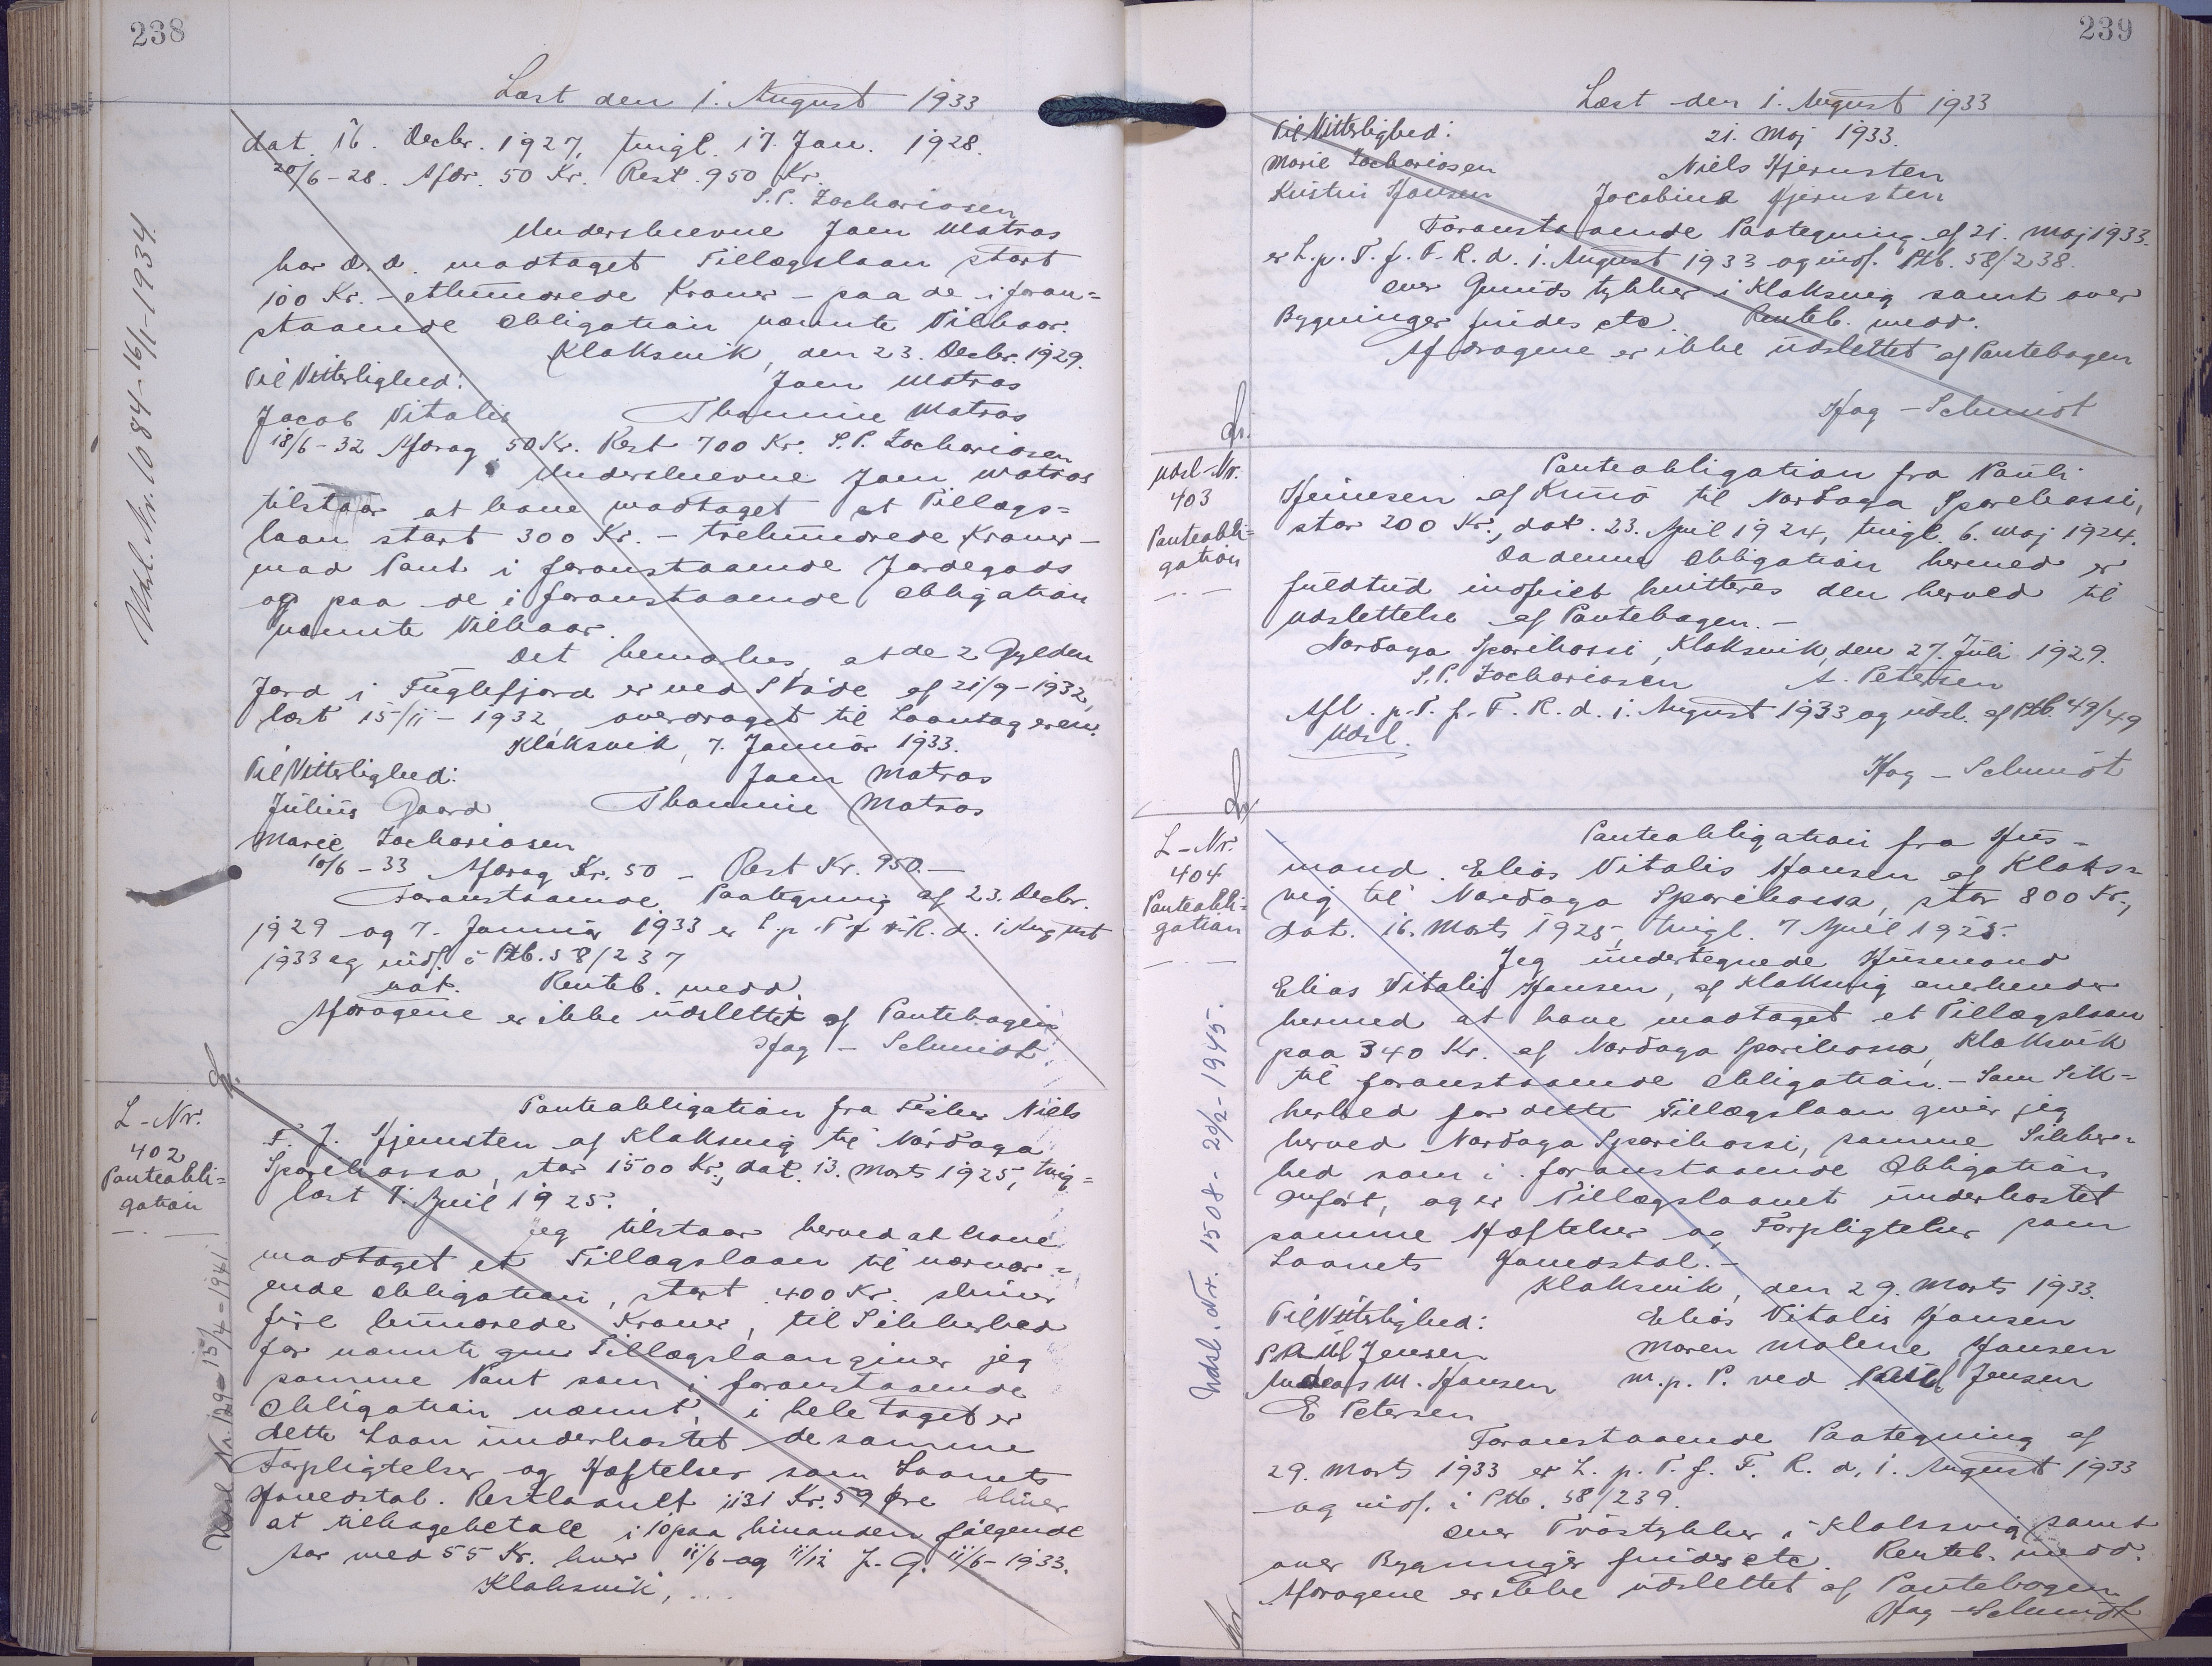 238
Læst den 1. August 1933
dat. 16. Decbr. 1927, tingl. 17. Jan. 1928.
20/6-28. Afdr. 50 Kr. Rest 950 Kr.
S.P. Zachariasen
Underskrevne Joen Matras
har d.d. modtaget Tillægslaan stort
100 Kr. - ethundrede Kroner - paa de i foran=
staaende Obligation nævnte Vilkaar.
Klaksvik, den 23. Decbr. 1929.
Til Vitterlighed:
Joen Matras
Jacob Vitalis
Thomine Matras
18/6-32 Afdrag 50 Kr. Rest 700 Kr. S.P. Zachariasen
Underskrevne Joen Matras
tilstaar at have modtaget et Tillægs=
laan stort 300 Kr. - trehundrede Kroner -
mod Pant i foranstaaende Jordegods
og paa de i foranstaaende Obligation
nævnte Vilkaar.
Det bemærkes, at de 2 Gylden
Jord i Fuglefjord er ved Skøde af 21/9-1932,
læst 15/11-1932, overdraget til Laantageren.
Klaksvik, 7. Januar 1933.
Til Vitterlighed:
Joen Matras
Julius Gaard
Thomine Matras
Marie Zachariasen
10/6-33 Afdrag Kr. 50 - Rest Kr. 950.-
Foranstaaende Paategning af 23. Decbr.
1929 og 7. Januar 1933 er L.p.T.f.F.R.d. 1. August
1933 og indf. i Ptb. 58/237
not. Renteb. medd.
Afdragene er ikke udslettet af Pantebogen
Hag-Schmidt
Udsl. Nr. 1084-16/1-1934.
L-Nr.
402
Panteobli=
gation
Panteobligation fra Fisker Niels
F. J. Hjernsten af Klaksvig til Nordoya
Sparikassa, stor 1500 Kr., dat. 13. Marts 1925, ting=
læst 7. April 1925.
Jeg tilstaar herved at have
modtaget et Tillægslaan til nærvær=
ende Obligation, stort 400 Kr. skriver
fire hundrede Kroner, til Sikkerhed
for nævnte Tillægslaan giver jeg
samme Pant som i foranstaaende
Obligation nævnt, i hele taget er
dette Laan underkastet de samme
Forpligtelser og Hæftelser som Laanets
Hovedstol. Restlaanet 1131 Kr. 59 Øre bliver
at tilbagebetale i 10 paa hinanden følgende
Aar med 55 Kr. hver 11/6 og 11/12 f. G. 11/6-1933.
Klaksvik, ...
Udsl Nr. 129-15/4-1941
239
Læst den 1. August 1933
Til Vitterlighed:
21. Maj 1933.
Marie Zachariasen
Niels Hjernsten
Kristin Hansen
Jacobine Hjernsten
Foranstaaende Paategning af 21. Maj 1933.
er L.p.T.f.F.R.d. 1. August 1933 og indf. Ptb. 58/238.
over Grundstykker i Klaksvig samt over
Bygninger findes etc. Renteb. medd.
Afdragene er ikke udslettet af Pantebogen
Hag-Schmidt
Udsl-Nr.
403
Panteobli=
gation
Panteobligation fra Pauli
Heinesen af Kunø til Nordoya Sparikassi,
stor 200 Kr., dat. 23. April 1924, tingl. 6. Maj 1924.
Da denne Obligation hermed er
fuldtud indfriet kvitteres den herved til
Udslettelse af Pantebogen.-
Nordoya Sparikassi, Klaksvik, den 27. Juli 1929.
S.P. Zachariasen
A. Petersen
Afl. p.T.f.F.R.d. 1. August 1933 og udsl. af Ptb. 49/49
Udsl.
Hag-Schmidt
L-Nr.
404
Panteobli=
gation
Panteobligation fra Hus=
mand Elias Vitalis Hansen af Klaks=
vig til Nordoya Sparikassa, stor 800 Kr.,
dat. 16. Marts 1925, tingl. 7 April 1925.
Jeg undertegnede Husmand
Elias Vitalis Hansen, af Klaksvig anerkender
hermed at have modtaget et Tillægslaan
paa 340 Kr. af Nordoya Sparikassa, Klaksvik
til foranstaaende Obligation.- Som Sik=
kerhed for dette Tillægslaan giver jeg
herved Nordoya Sparikassi, samme Sikker=
hed som i foranstaaende Obligation
anført, og er Tillægslaanet underkastet
samme Hæftelser og Forpligtelser som
Laanets Hovedstol.-
Klaksvik, den 29. Marts 1933.
Til Vitterlighed:
Elias Vitalis Hansen
Paul Jensen
Maren Malene Hansen
Andreas M. Hansen
m.p.P. ved Paul Jensen
E Petersen
Foranstaaende Paategning af
29. Marts 1933 er L.p.T.f.F.R.d. 1. August 1933
og indf. i Ptb. 58/239.
over Tvostykker i Klaksvig samt
over Bygninger findes etc. Renteb. medd.
Afdragene er ikke udslettet af Pantebogen
Hag-Schmidt
Udsl. Nr. 1508-20/2-1945.